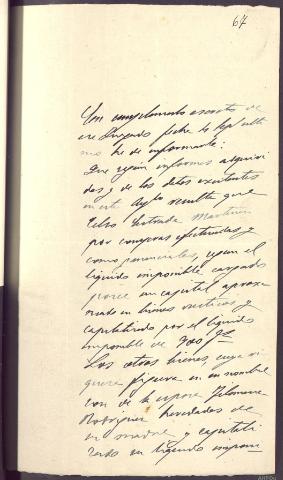 64
En cumplimiento escrito de
ese Juzgado fecha 16 Sepbre ulti
mo he de informarle:
Que según informes adquiri
dos y de los datos existentes
en este Aytº resulta que
Celso Estrada Martínez
por compras efectuadas y
como gananciales, según el
líquido imponible cargado
posee un capital aproxi
mado en bienes rusticos y
capitalizado por el líquido
imponible de 700 ptas
Los otros bienes, cuya ri
queza figura en su nombre
son de la esposa Filomena
Rodriguez heredados de
su madre y capitali
zado su líquido imponi